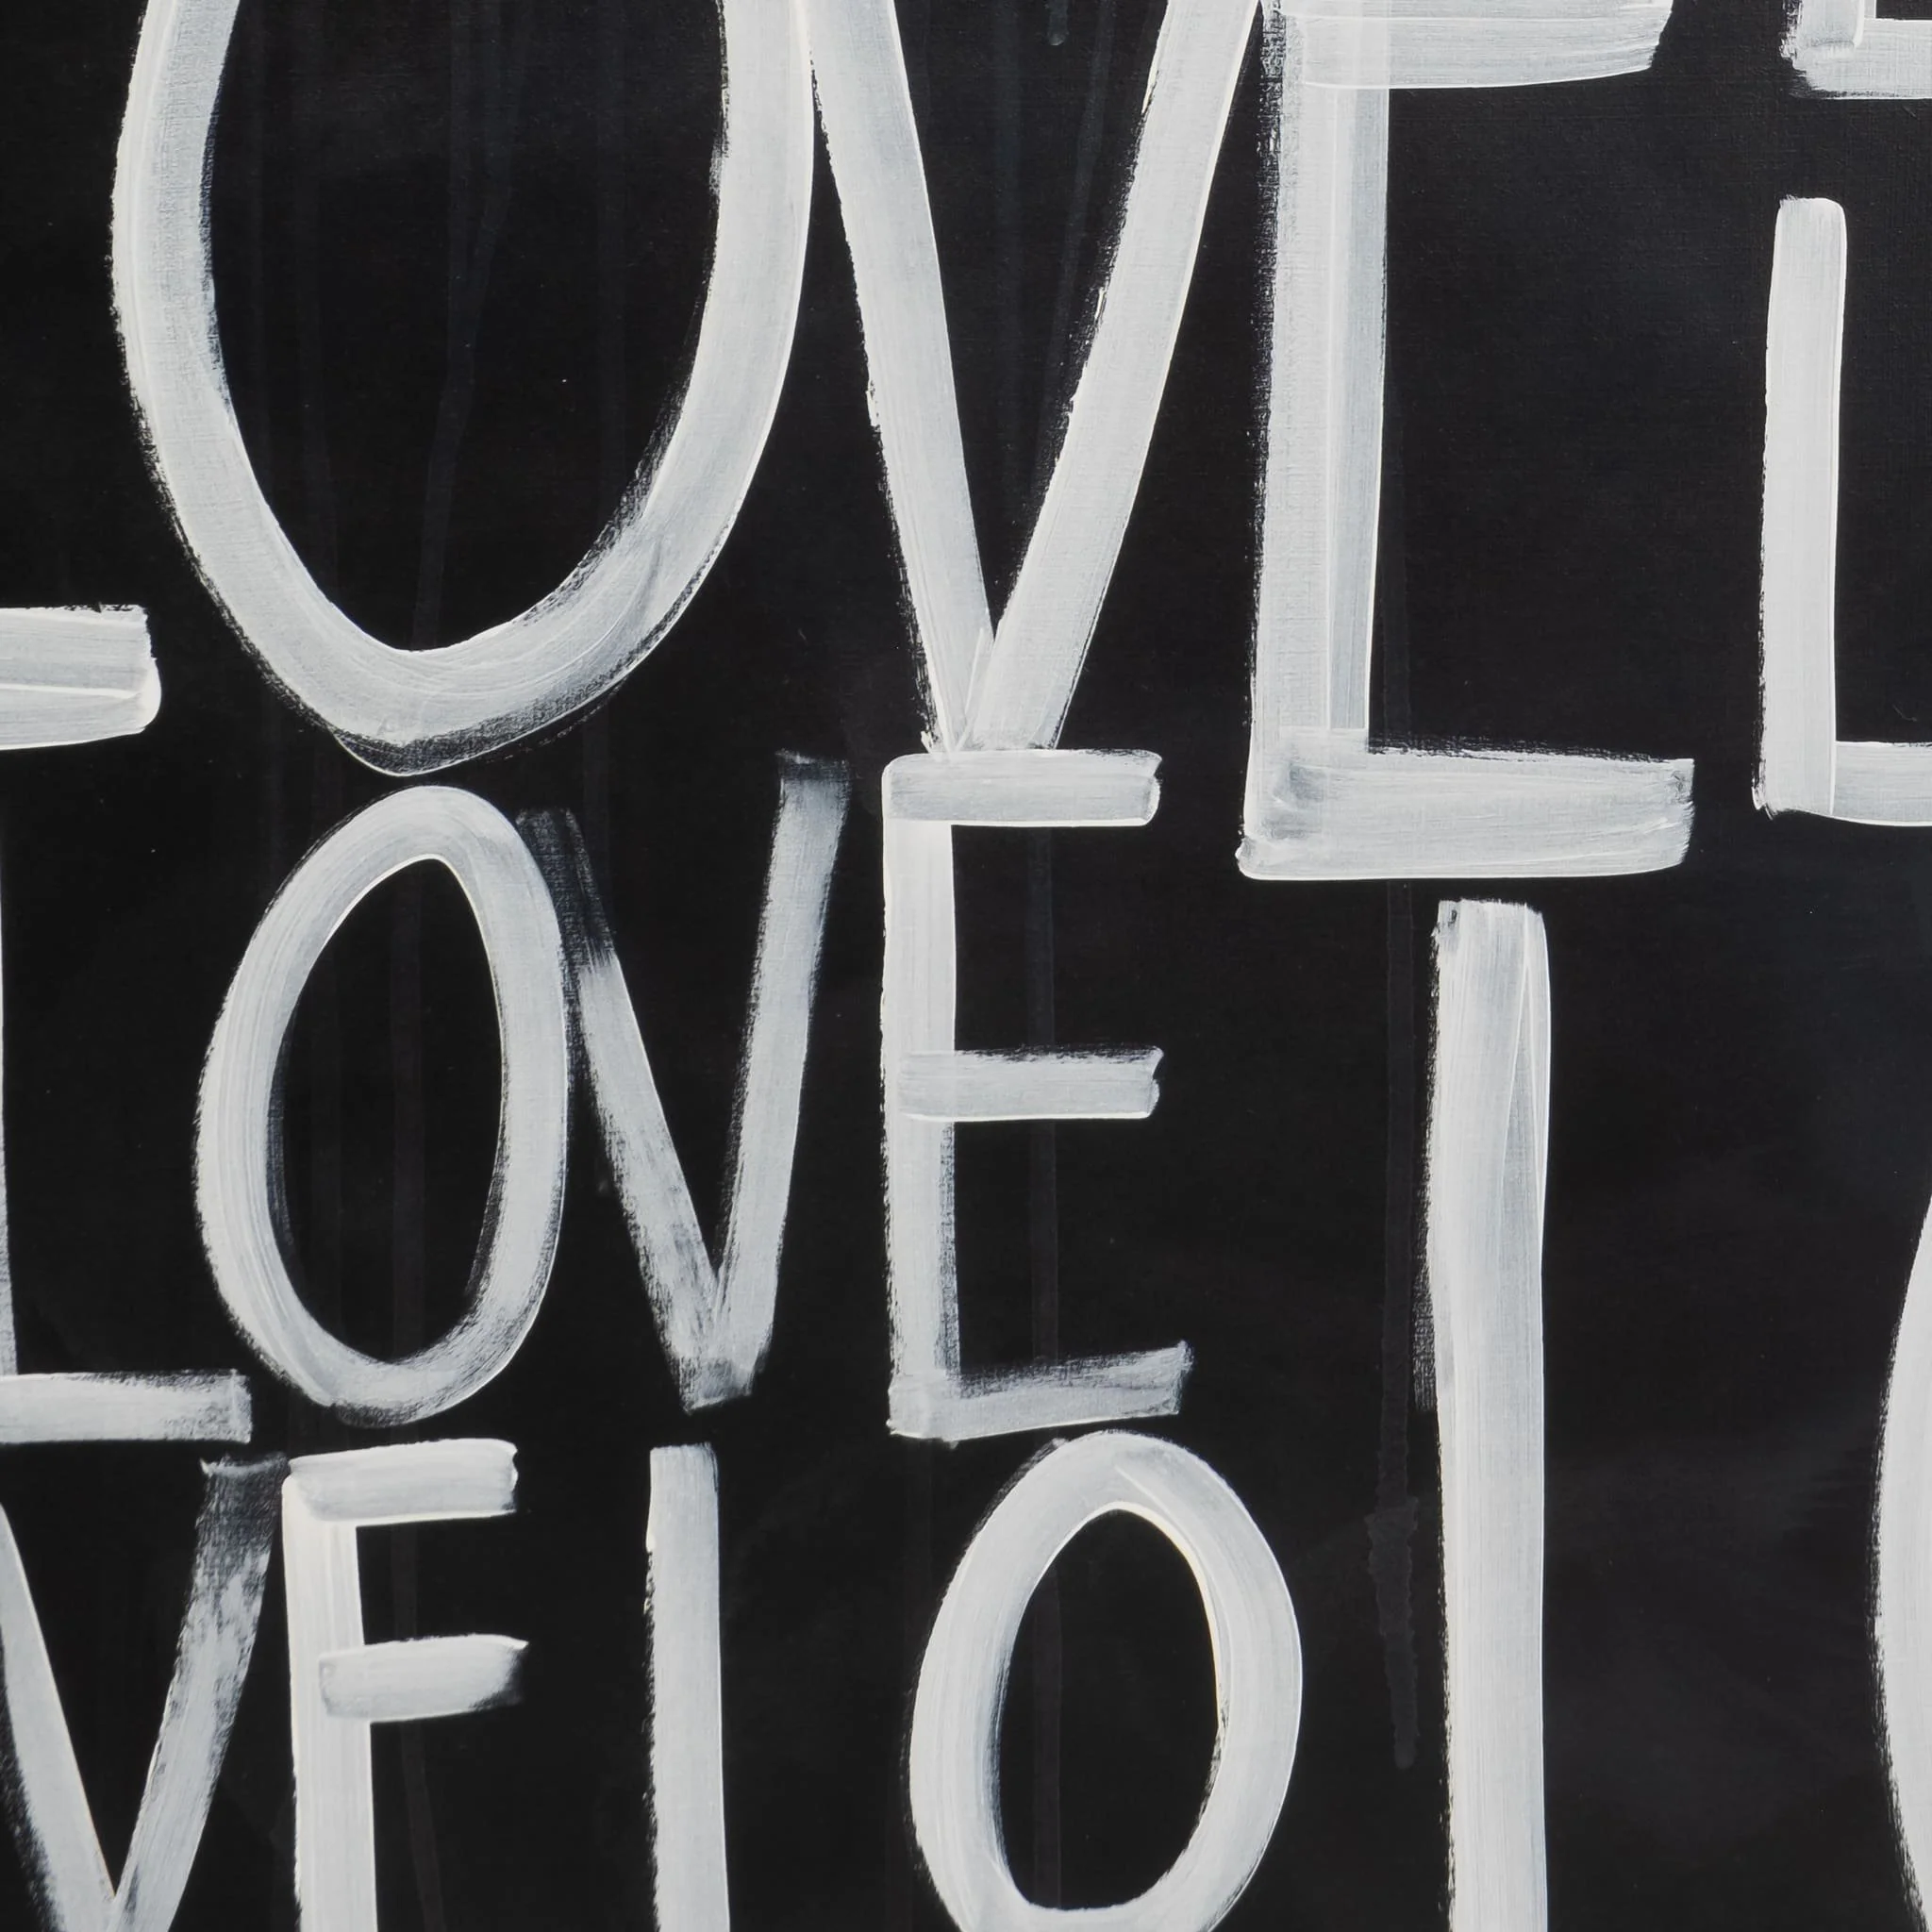 LOVE
L
LOVE
VE LO